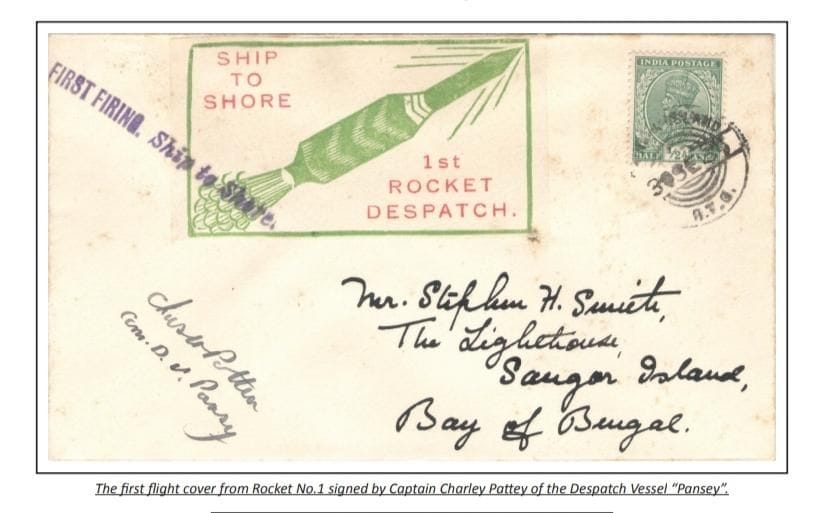 SHIP
TO
SHORE
FIRST FIRING. Ship to Shore.
1st
ROCKET
DESPATCH.
INDIA POSTAGE
HALF
30 SE
R.T.G.
Mr. Stephen H. Smith,
The Lighthouse,
Saugor Island,
Bay of Bengal.
Com. D. V. Pansy
The first flight cover from Rocket No.1 signed by Captain Charley Pattey of the Despatch Vessel “Pansey”.